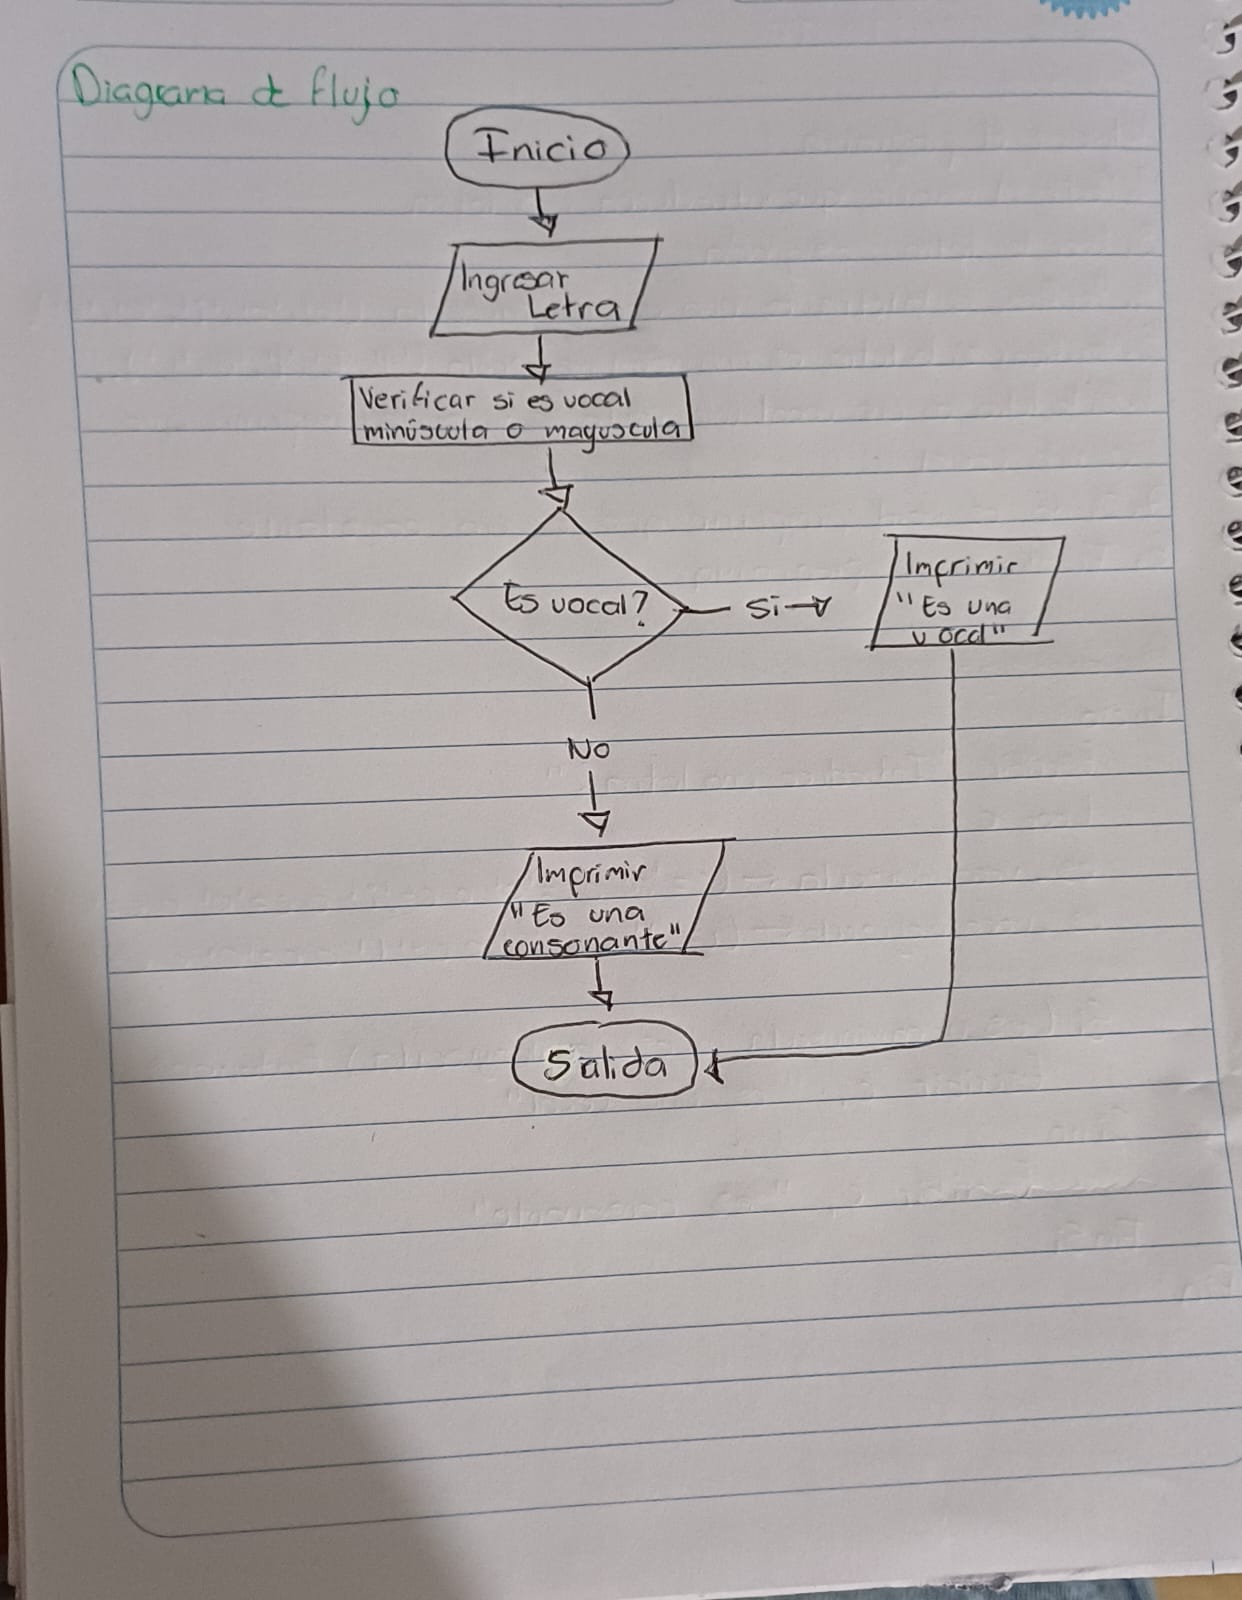 Diagrama de flujo
Inicio
Ingresar
Letra
Verificar si es vocal
minúscula o mayuscula
Es vocal?
Si
Imprimir
"Es una
vocal"
No
Imprimir
"Es una
consonante"
Salida